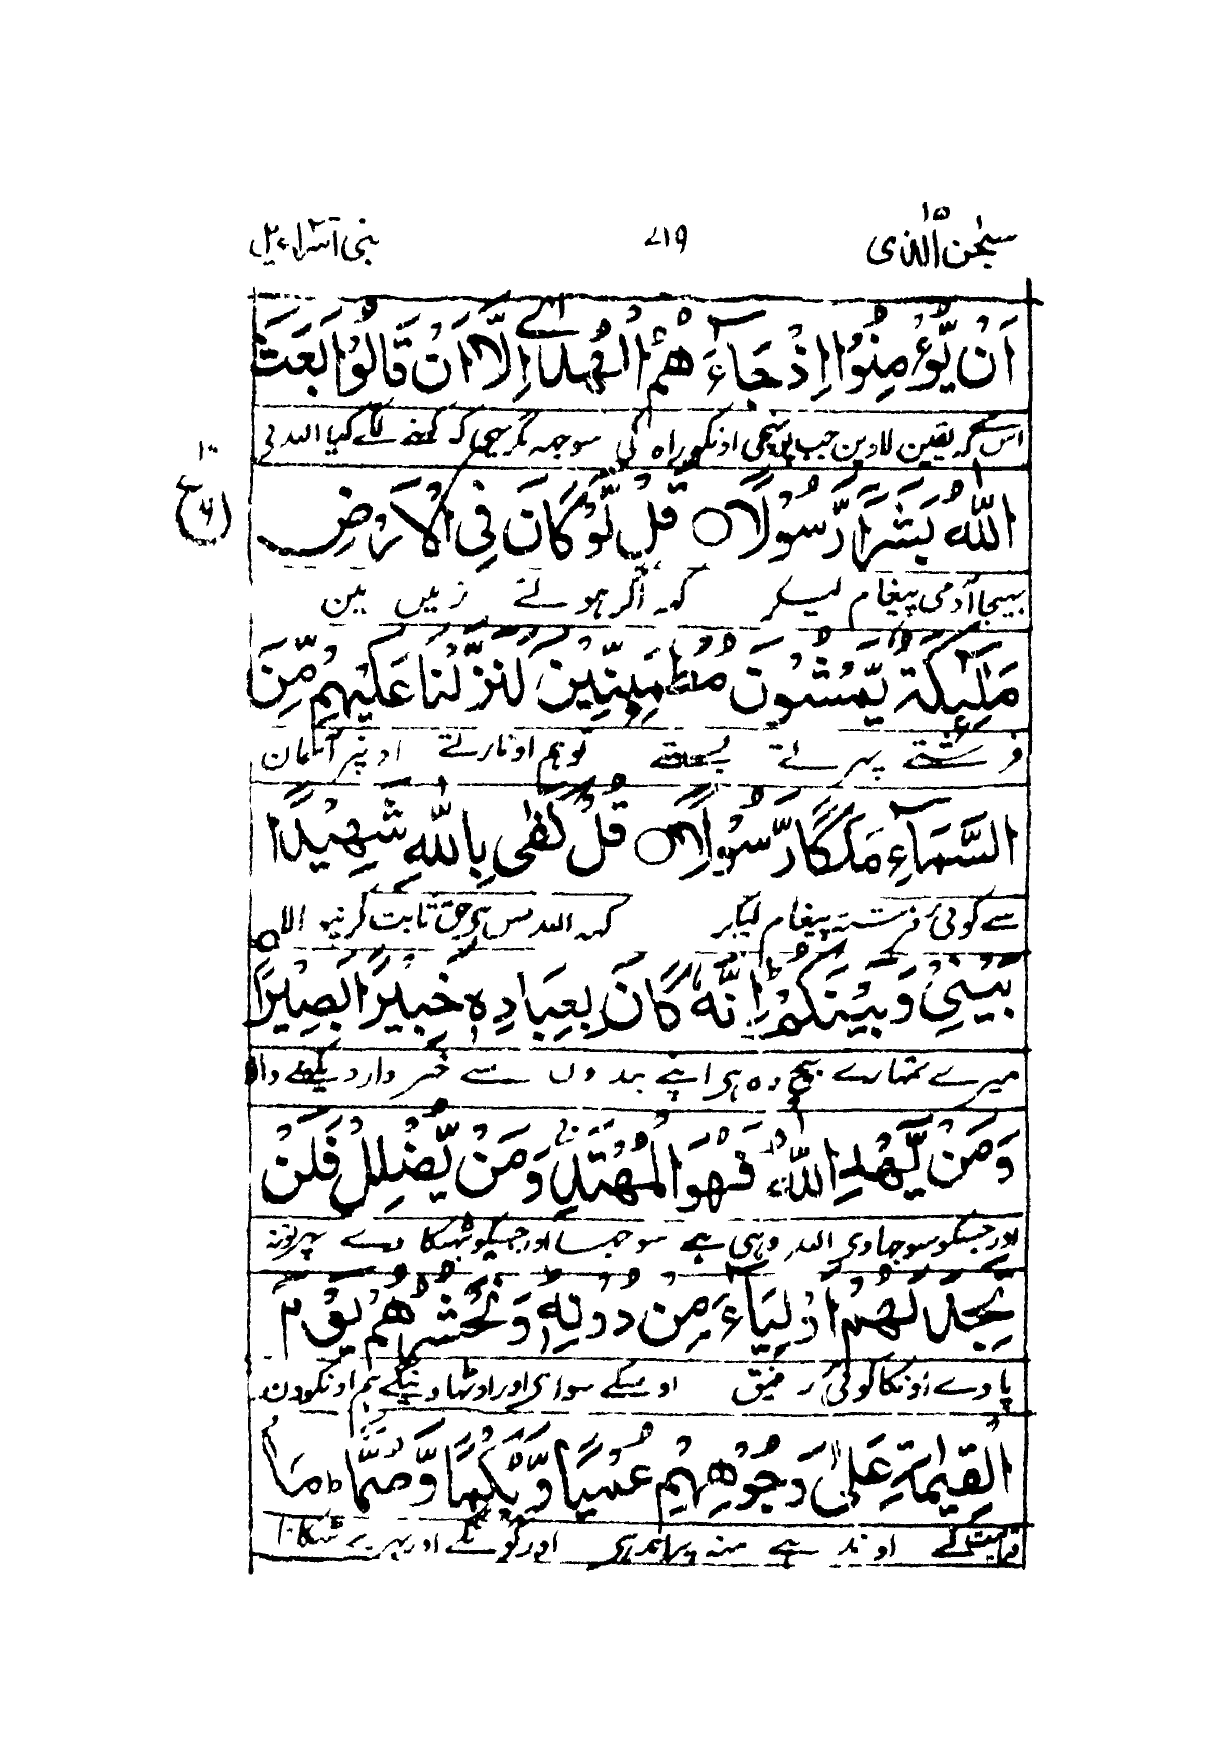 سبحن الذی ۱۵ ۷۱۹ بنی اسراءیل
اَنْ یُّؤْمِنُوْۤا اِذْ جَآءَهُمُ الْهُدٰۤی اِلَّاۤ اَنْ قَالُوْۤا اَبَعَثَ
اس سے کہ یقین لاوین جب پہنچی اونکو راہ کی سوجھ مگر یہی کہ کہنے لگے کیا اللہ نی
اللّٰهُ بَشَرًا رَّسُوْلًا ○ قُلْ لَّوْ كَانَ فِی الْاَرْضِ
بھیجا آدمی پیغام لیکر کہہ اگر ہوتے زمیں مین
مَلٰٓىِٕكَةٌ یَّمْشُوْنَ مُطْمَىِٕنِّیْنَ لَنَزَّلْنَا عَلَیْهِمْ مِّنَ
فرشتے پہرتے بستے تو ہم اوتارتے اونپر آسمان
السَّمَآءِ مَلَكًا رَّسُوْلًا ○ قُلْ كَفٰی بِاللّٰهِ شَهِیْدًۢا
سے کوئی فرشتہ پیغام لیکر کہہ اللہ بس ہی حق ثابت کرنیوالا
بَیْنِیْ وَبَیْنَكُمْ اِنَّهٗ كَانَ بِعِبَادِهٖ خَبِیْرًۢا بَصِیْرًا ○
میرے تمہارے بیچ وہ ہی اپنے بندوں سے خبردار دیکھنے والا
وَمَنْ یَّهْدِ اللّٰهُ فَهُوَ الْمُهْتَدِ وَمَنْ یُّضْلِلْ فَلَنْ
اور جسکو سوجھاوی اللہ وہی ہے سوجھا اور جسکو بھٹکاوے پہر تو نہ
تَجِدَ لَهُمْ اَوْلِیَآءَ مِنْ دُوْنِهٖ وَنَحْشُرُهُمْ یَوْمَ
پاوے اونکا کوئی رفیق اوسکے سوا ی اور اوٹھاوینگے ہم اونکو دن
الْقِیٰمَةِ عَلٰی وُجُوْهِهِمْ عُمْیًا وَّبُكْمًا وَّصُمًّا ط مَاْ
قیامت کے اوندہے منہ پر اندہی اور گونگے اور بہرے ٹھکانا
۱۰
ع